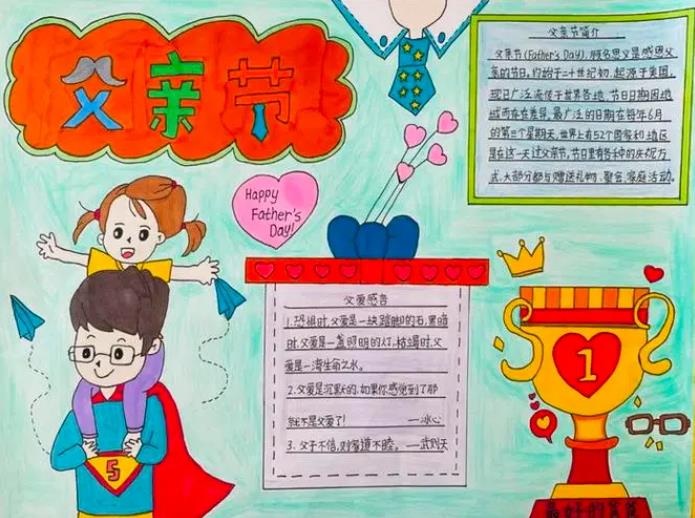 父亲节
Happy
Father's
Day!
父亲节简介
父亲节(Father's Day),顾名思义是感恩父
亲的节日,约始于二十世纪初,起源于美国,
现已广泛流传于世界各地,节日日期因地
域而存在差异。最广泛的日期在每年6月
的第三个星期天,世界上有52个国家和地区
是在这一天过父亲节,节日里有各种的庆祝方
式,大部分都与赠送礼物、聚会、家庭活动。
父爱感言
1.恐惧时,父爱是一块踏脚的石,黑暗
时,父爱是一盏照明的灯,枯竭时,父
爱是一湾生命之水。
2.父爱是沉默的,如果你感觉到了那
就不是父爱了! ——冰心
3.父子不信,则家道不睦。——武则天
1
S
最好的爸爸